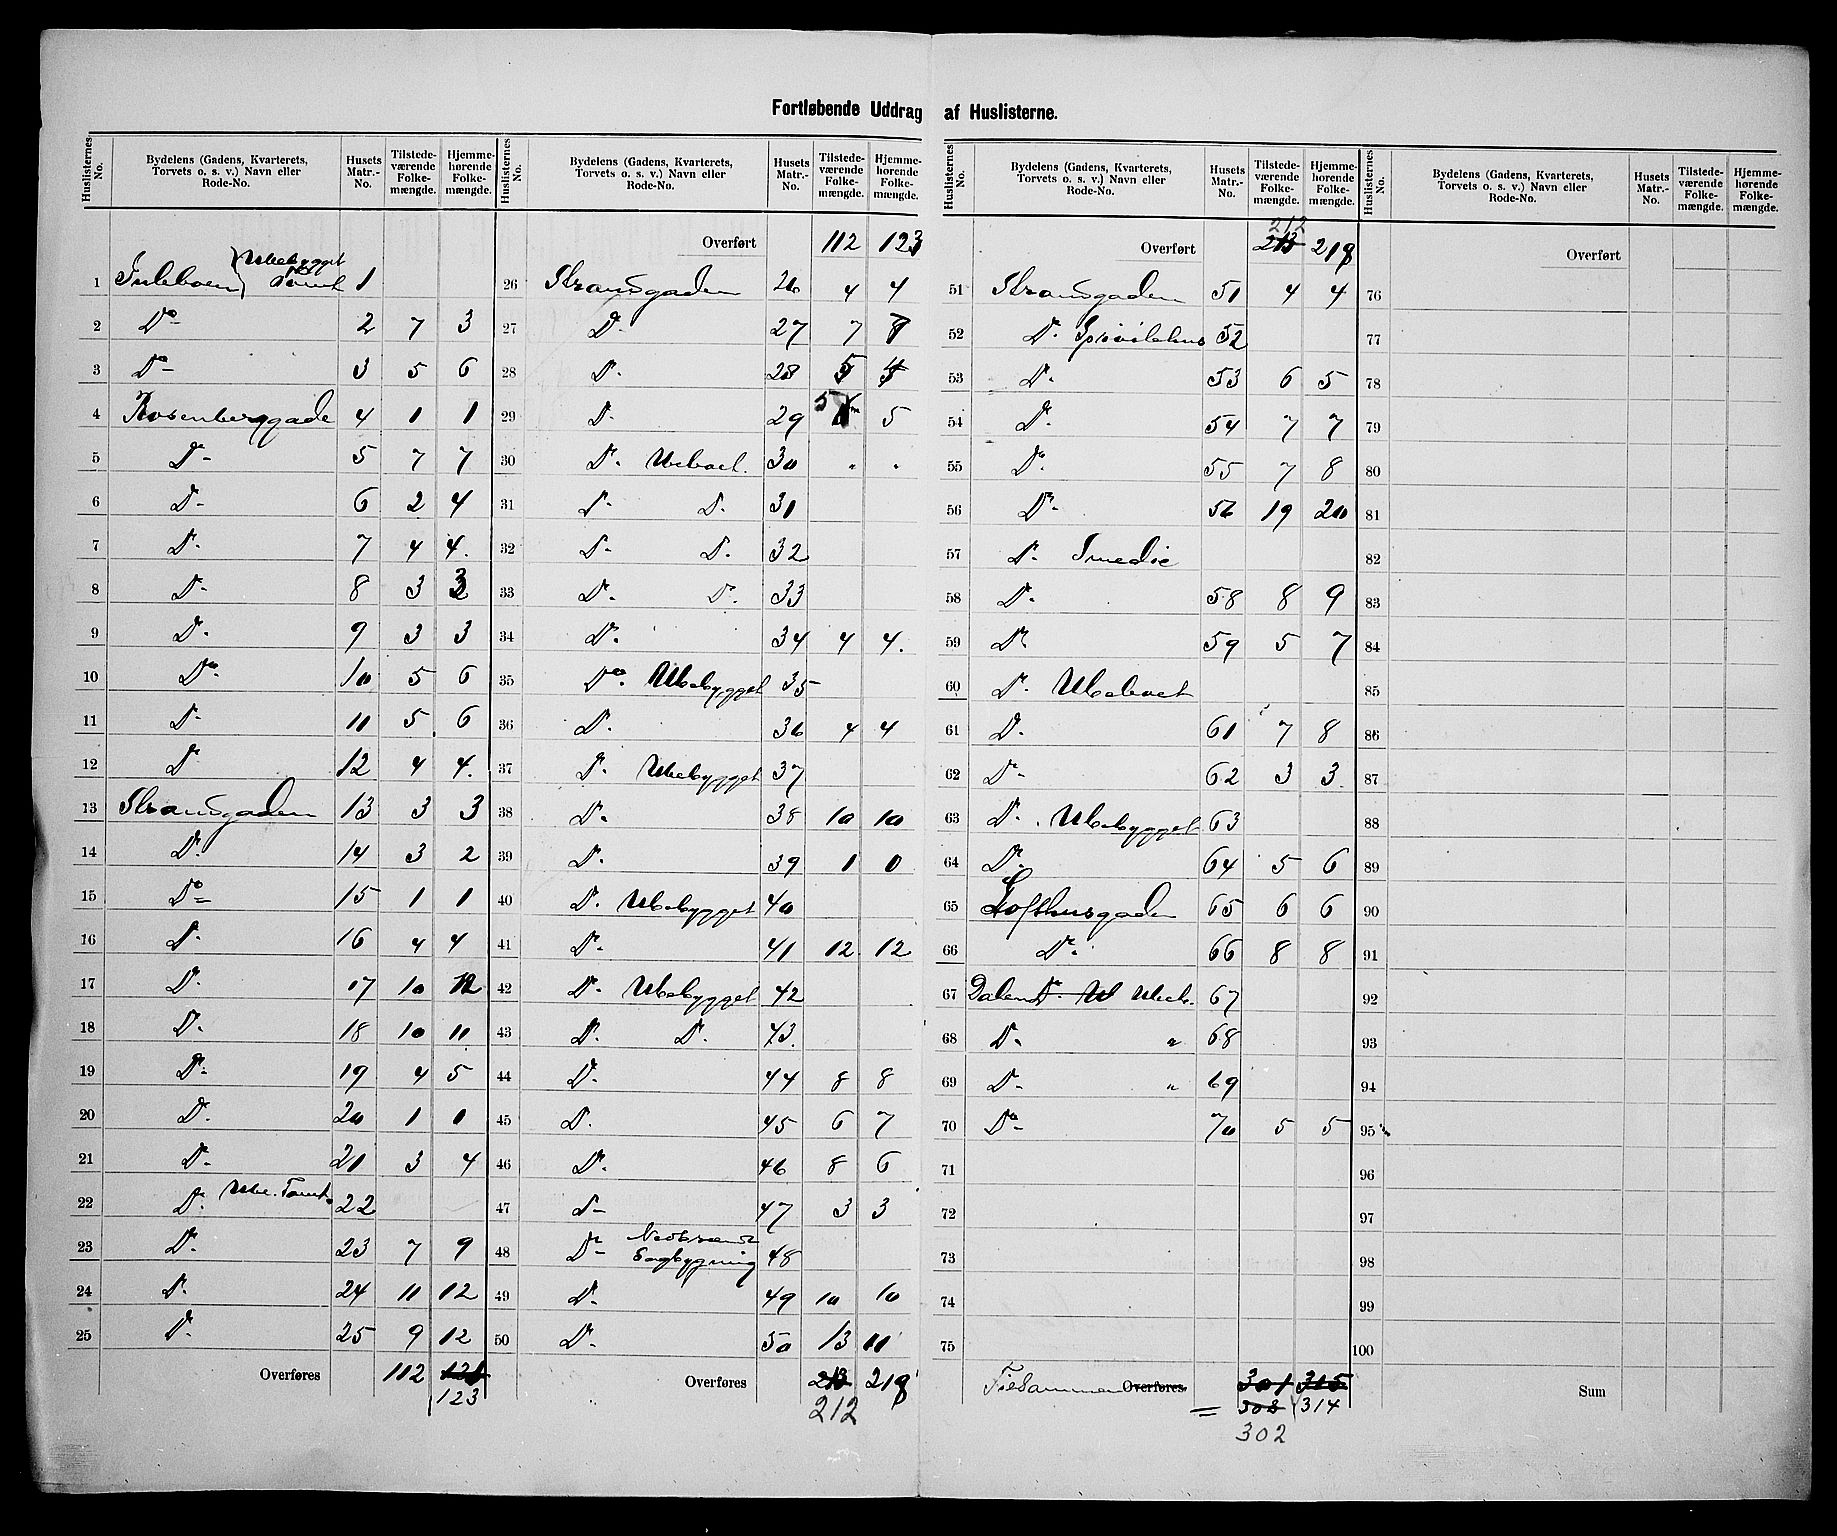 Fortløbende Uddrag af Huslisterne.
Huslisternes No. | Bydelens (Gadens, Kvarterets, Torvets o. s. v.) Navn eller Rode-No. | Husets Matr.-No. | Tilstedeværende Folkemængde. | Hjemmehørende Folkemængde.
Ubebygget
1 Tomt 1
2 Do 2 7 3
3 Do 3 5 6
4 Rosenberggade 4 1 1
5 Do 5 7 7
6 Do 6 2 4
7 Do 7 4 4.
8 Do 8 3 3
9 Do 9 3 3
10 Do 10 5 6
11 Do 11 5 6
12 Do 12 4 4.
13 Strandgaden 13 3 3
14 Do 14 3 2
15 Do 15 1 1
16 Do 16 4 4
17 Do 17 10 12
18 Do 18 10 11
19 Do 19 4 5
20 Do 20 1 1
21 Do 21 3 4
22 Do Ube. Tomt 22
23 Do 23 7 9
24 Do 24 11 12
25 Do 25 9 12
Overføres 112
123
Huslisternes No. | Bydelens (Gadens, Kvarterets, Torvets o. s. v.) Navn eller Rode-No. | Husets Matr.-No. | Tilstedeværende Folkemængde. | Hjemmehørende Folkemængde.
Overført 112 123
26 Strandgaden 26 4 4
27 Do 27 7 8
28 Do 28 5 4
29 Do 29 5 5
30 Do Ubeboet. 30 " "
31 Do Do 31
32 Do Do 32
33 Do Do 33
34 Do 34 4 4.
35 Do Ubebygget 35
36 Do 36 4 4
37 Do Ubebygget 37
38 Do 38 10 10
39 Do 39 1 0
40 Do Ubebygget 40
41 Do 41 12 12
42 Do Ubebygget 42
43 Do Do 43.
44 Do 44 8 8
45 Do 45 6 7
46 Do 46 8 6
47 Do 47 3 3
48 Do Nedbrændt
Bogbygning 48
49 Do 49 10 10
50 Do 50 13 11
Overføres 213 218
212
Huslisternes No. | Bydelens (Gadens, Kvarterets, Torvets o. s. v.) Navn eller Rode-No. | Husets Matr.-No. | Tilstedeværende Folkemængde. | Hjemmehørende Folkemængde.
212
Overført 213 218
51 Strandgaden 51 4 4
52 Do Sprøitehus 52
53 Do 53 6 5
54 Do 54 7 7
55 Do 55 7 8
56 Do 56 19 20
57 Do Smedie
58 Do 58 8 9
59 Do 59 5 7
60 Do Ubeboet
61 Do 61 7 8
62 Do 62 3 3
63 Do Ubebygget 63
64 Do 64 5 6
65 Lofthusgaden 65 6 6
66 Do 66 8 8
67 Dalen Do U Ubeb. 67
68 Do " 68
69 Do " 69
70 Do 70 5 5
71
72
73
74
75
Tilsammen Overføres 301 315
= 303 314
302
Huslisternes No. | Bydelens (Gadens, Kvarterets, Torvets o. s. v.) Navn eller Rode-No. | Husets Matr.-No. | Tilstedeværende Folkemængde. | Hjemmehørende Folkemængde.
Overført
76
77
78
79
80
81
82
83
84
85
86
87
88
89
90
91
92
93
94
95
96
97
98
99
100
Sum